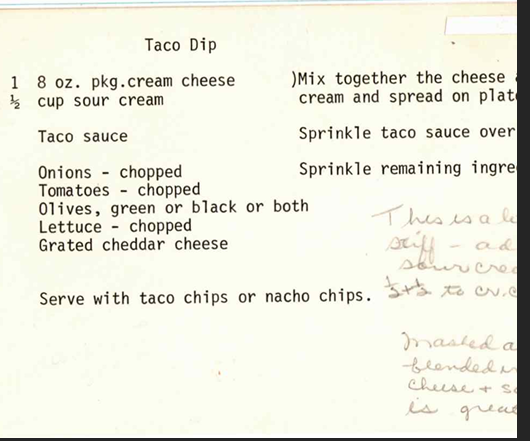 Taco Dip
1 8 oz. pkg.cream cheese )Mix together the cheese
½ cup sour cream cream and spread on plat
Taco sauce Sprinkle taco sauce over
Onions - chopped Sprinkle remaining ingre
Tomatoes - chopped
Olives, green or black or both
Lettuce - chopped
Grated cheddar cheese
This is a
stiff - ad
sour crea
Serve with taco chips or nacho chips. ½+½ to cr.c
Mashed a
blended
cheese + s
is grea